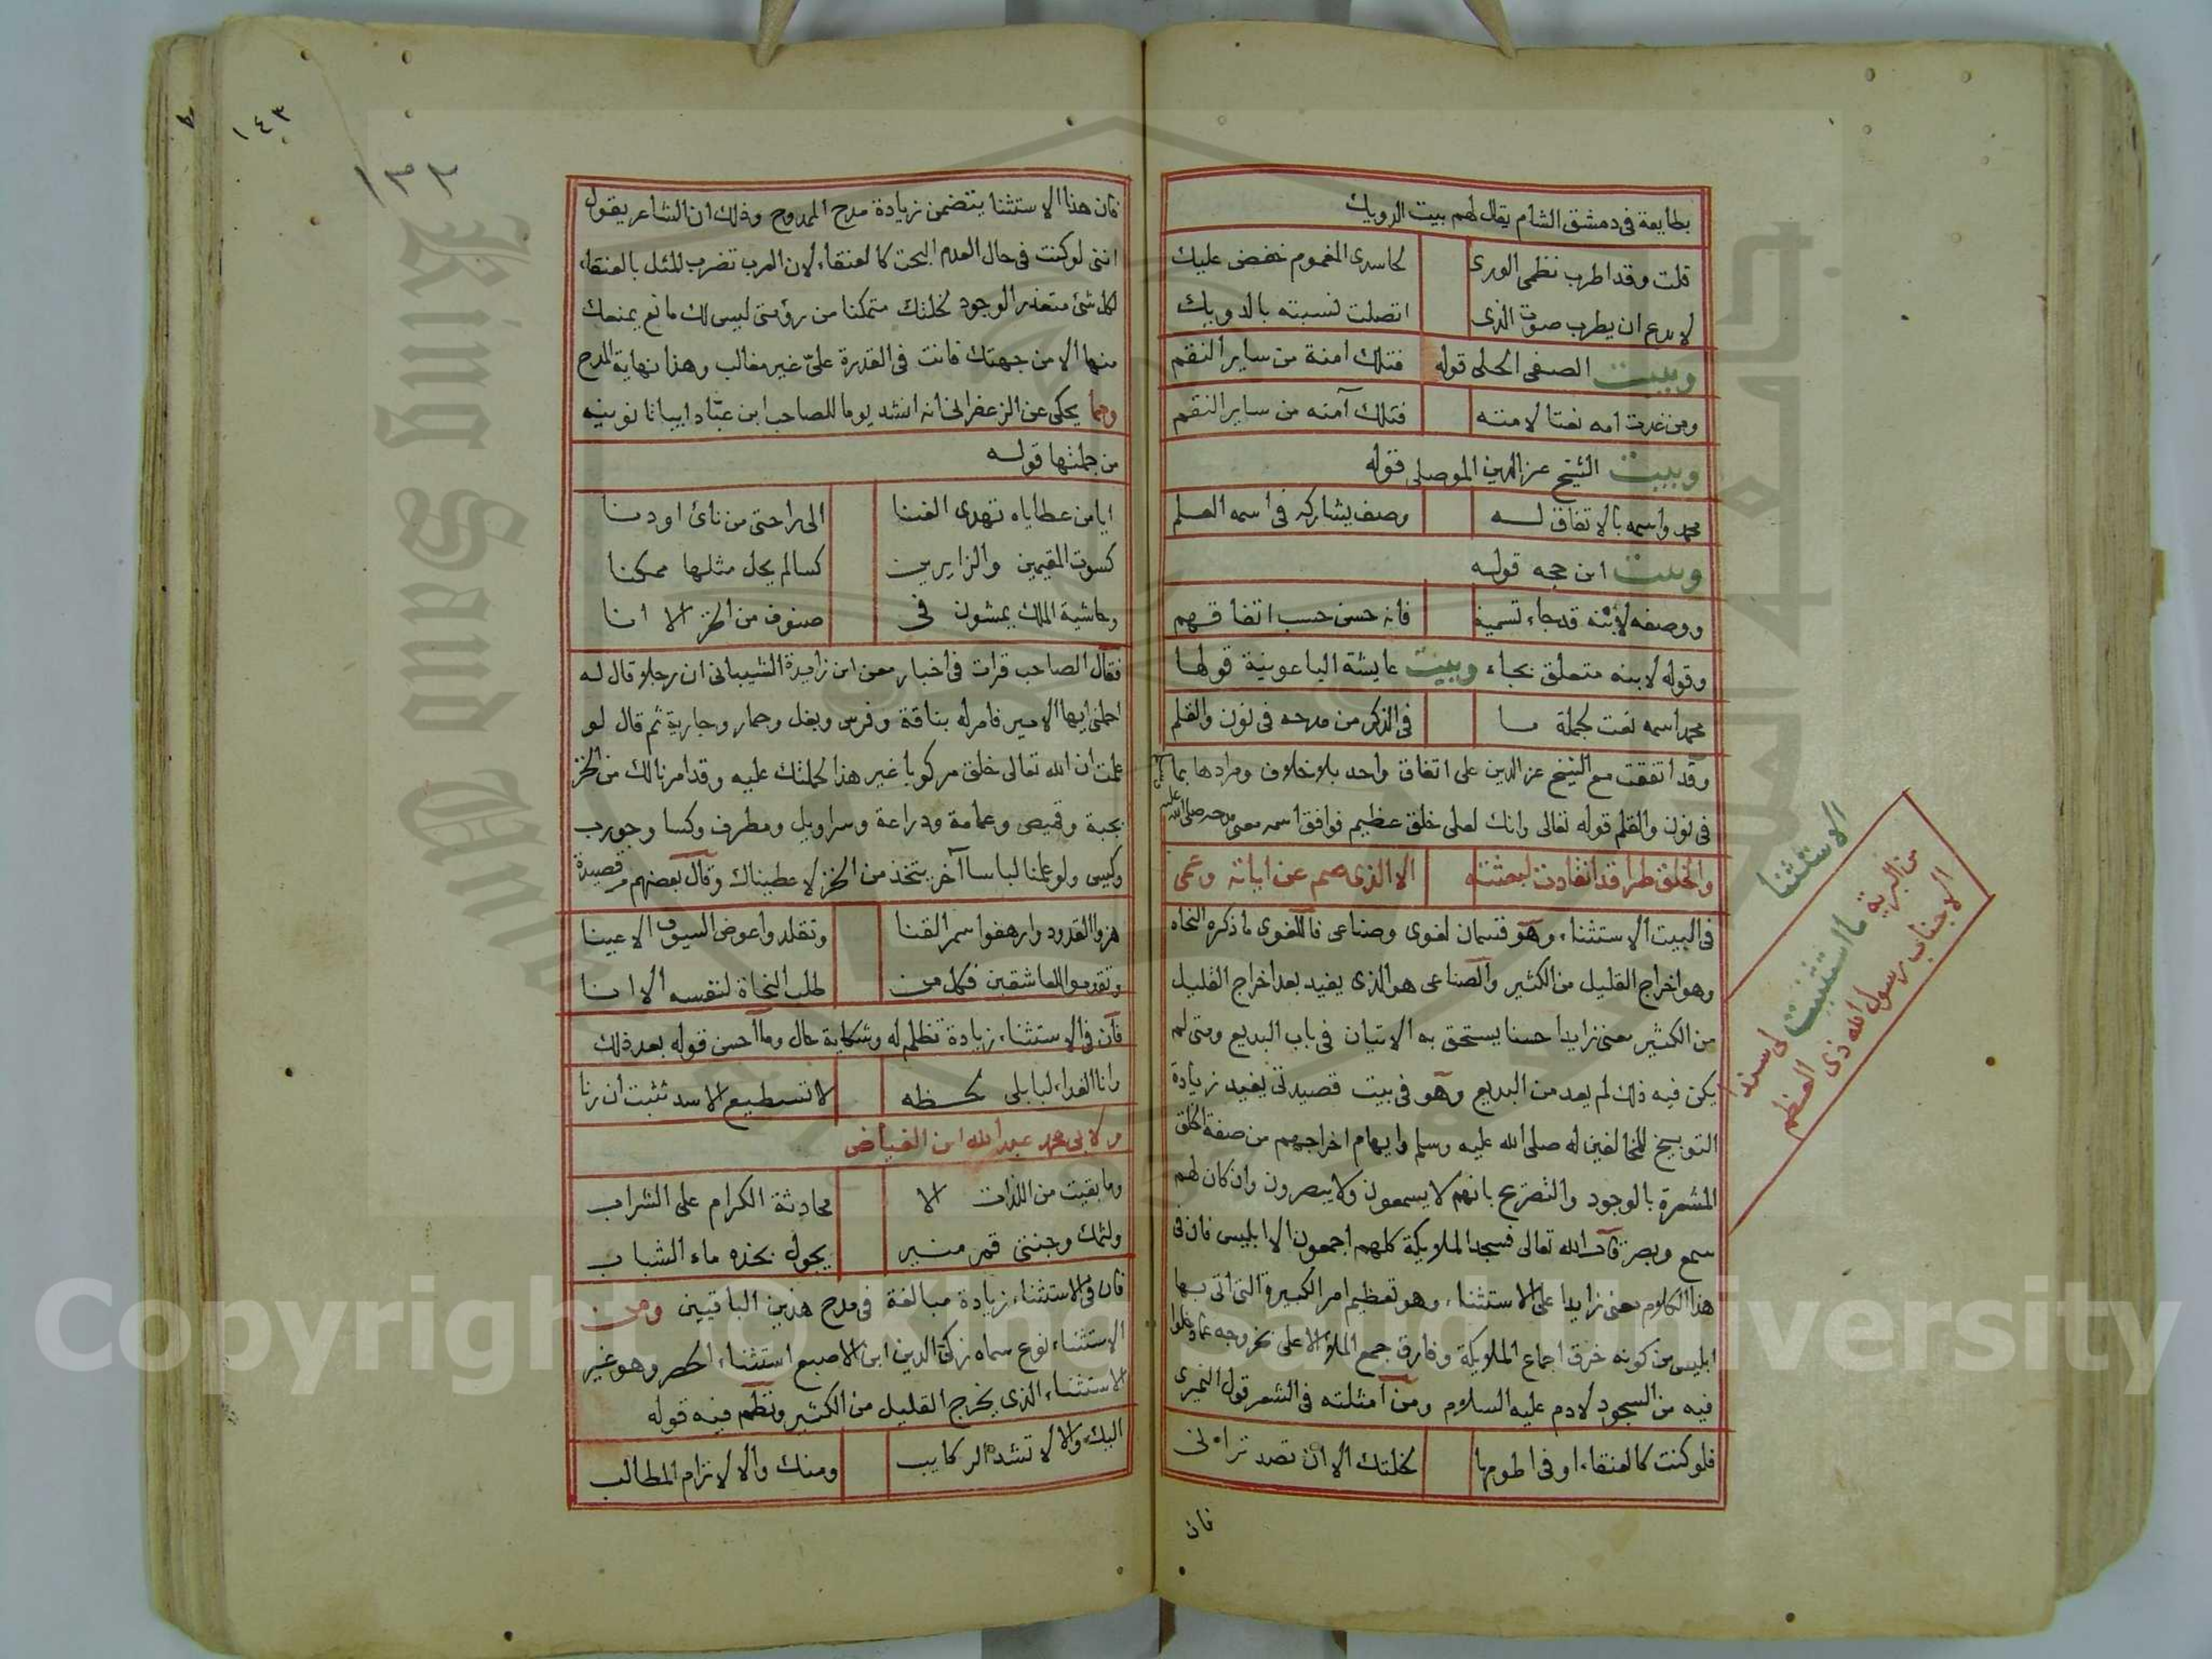 بطايفة في دمشق الشام يقال لهم بيت الدويك
قلت وقد اطرب نظمى الورى لحاسدى المغموم خفض عليك
لا بدع ان يطرب صوت الذى اتصلت نسبته بالدويك
وبيت الصفى الحلى قوله فتلك امنة من ساير النقم
ومن غدت امه نعتا لامته فتلك آمنه من ساير النقم
وبيت الشيخ عز الدين الموصلى قوله
محمد واسمه بالاتفاق له وصف يشاركه فى اسمه العلم
وبيت ابن حجه قوله
ووصفه لابنه قد جاء تسمية فانه حسن حسب اتفاقهم
وقوله لابنه متعلق بجاء وبيت عايشة الباعونية قولها
محمد اسمه نعت لجملة ما فى الذكر من مدحه فى نون والقلم
وقد اتفقت مع الشيخ عز الدين على اتفاق واحد بلا خلاف ومرادها بما
فى نون والقلم قوله تعالى وانك لعلى خلق عظيم فوافق اسمه معنى مدحه صلى الله عليه
والخلق طرا قد انقادت لبعثته الا الذى صم عن اياته وعمى
فى البيت الاستثناء وهو قسمان لغوى وصناعى فاللغوى ما ذكره النحاه
وهو اخراج القليل من الكثير والصناعى هو الذى يفيد بعد اخراج القليل
من الكثير معنى زايدا حسنا يستحق به الاتيان فى باب البديع ومتى لم
يكن فيه ذلك لم يعد من البديع وهو فى بيت قصيدتى يفيد زيادة
التوبيخ للمخالفين له صلى الله عليه وسلم وايهام اخراجهم من صفة الخلق
المشعرة بالوجود والتصريح بانهم لا يسمعون ولا يبصرون وان كان لهم
سمع وبصر قال الله تعالى فسجد الملايكة كلهم اجمعون الا ابليس فان فى
هذا الكلام معنى زايدا على الاستثناء وهو تعظيم امر الكبيرة التى اتى بها
ابليس من كونه خرق اجماع الملايكة وفارق جمع الملا الاعلى بخروجه عما دخلوا
فيه من السجود لادم عليه السلام ومن امثلته فى الشعر قول النميرى
فلو كنت كالعنقاء او فى اطومها لخلتك الا ان تصد ترانى
فان
الاستثنا
من البرية ما استثنيت لى سندا
الا جناب رسول الله ذى العظم
١٤٣
١٣٢
فان هذا الاستثنا يتضمن زيادة مدح الممدوح وذلك ان الشاعر يقول
اننى لو كنت فى حال العدم البحت كالعنقاء لان العرب تضرب المثل بالعنقاء
لكل شئ متعذر الوجود لخلتك متمكنا من رؤيتى ليس لك مانع يمنعك
منها الا من جهتك فانت فى القدرة علىّ غير مغالب وهذا نهاية المدح
ومما يحكى عن الزعفرانى انه انشد يوما للصاحب ابن عبّاد ابياتا نونيه
من جملتها قوله
ايا من عطاياه تهدى الغنا الى راحتى من نائ او دنا
كسوت المقيمين والزايرين كسا لم يخل مثلها ممكنا
وحاشية الملك يمشون فى صنوف من الخز الا انا
فقال الصاحب قرات فى اخبار معن ابن زايدة الشيبانى ان رجلا قال له
احملنى ايها الامير فامر له بناقة وفرس وبغل وحمار وجارية ثم قال لو
علمت ان الله تعالى خلق مركوبا غير هذا لحملتك عليه وقد امرنا لك من الخز
بجبة وقميص وعمامة ودراعة وسراويل ومطرف وكسا وجورب
وكيس ولو علمنا لباسا آخر يتخذ من الخز لاعطيناك وقال بعضهم من قصيدة
هزوا القدود وارهفوا سمر القنا وتقلدوا عوض السيوف الاعينا
وتقدموا للعاشقين فكل من طلب النجاة لنفسه الا انا
فان فى الاستثناء زيادة تظلم له وشكاية حال وما احسن قوله بعد ذلك
وانا الفداء لبابلى لحظه لا تستطيع الاسد تثبت ان رنا
ولابى محمد عبد الله ابن الفياض
وما بقيت من اللذات الا محادثة الكرام على الشراب
ولثمك وجنتى قمر منير يجول بخده ماء الشباب
فان فى الاستثناء زيادة مبالغة فى مدح هذين الباقيين ومن
الاستثناء نوع سماه زكى الدين ابن الاصبع استثناء الحصر وهو غير
الاستثناء الذى يخرج القليل من الكثير ونظم فيه قوله
اليك والا لا تشد الركايب ومنك والا لا ترام المطالب
Copyright © King Saud University
King Saud University